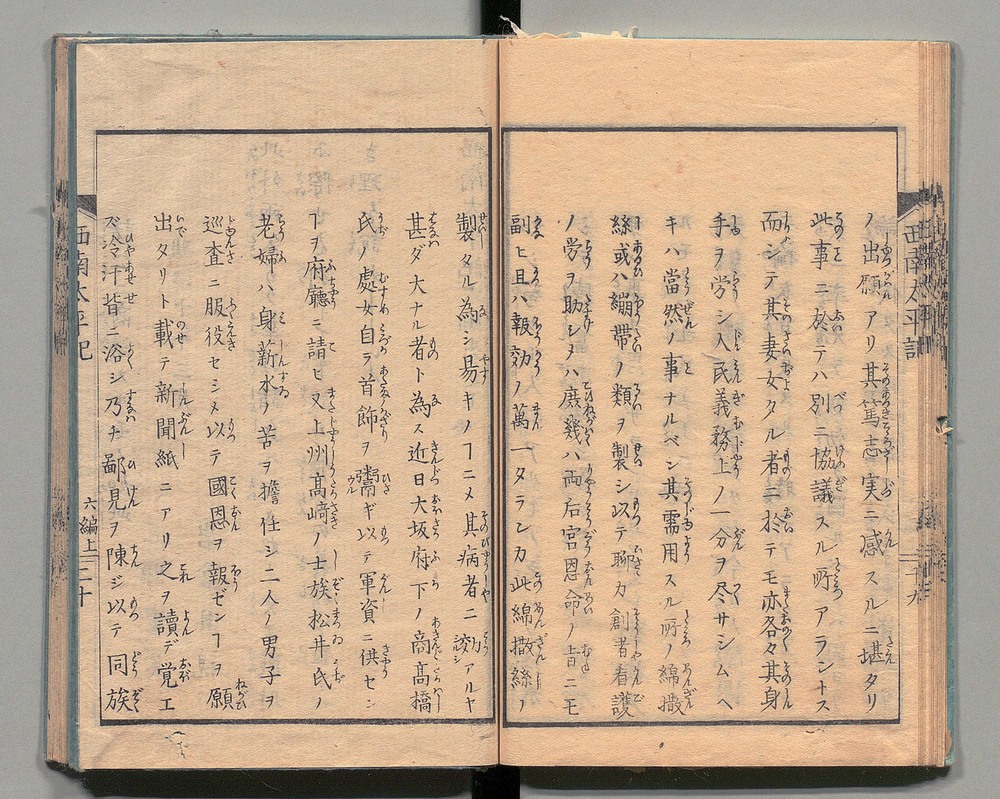 ノ出願アリ其篤志実ニ感スルニ堪タリ
此事ニ於テハ別ニ協議スル所アラントス
而シテ其妻女タル者ニ於テモ亦各々其身
手ヲ労シ人民義務上ノ一分ヲ尽サシムヘ
キハ當然ノ事ナルベシ其需用スル所ノ綿撒
絲或ハ繃帯ノ類ヲ製シ以テ聊カ創者看護
ノ労ヲ助シメハ庶幾ハ両后宮恩命ノ旨ニモ
副ヒ且ハ報効ノ萬一タランカ此綿撒絲ノ
製タル為シ易キノヿニメ其病者ニ効アルヤ
甚ダ大ナル者ト為ス近日大坂府下ノ商髙橋
氏ノ處女自ラ首飾ヲ鬻ギ以テ軍資ニ供セン
ヿヲ府廳ニ請ヒ又上州髙﨑ノ士族松井氏ノ
老婦ハ身薪水ノ苦ヲ擔任シ二人ノ男子ヲ
巡査ニ服役セシメ以テ國恩ヲ報ゼンヿヲ願
出タリト載テ新聞紙ニアリ之ヲ讀デ覚エ
ズ冷汗背ニ浴シ乃チ鄙見ヲ陳ジ以テ同族
西南太平記
六編上
二十